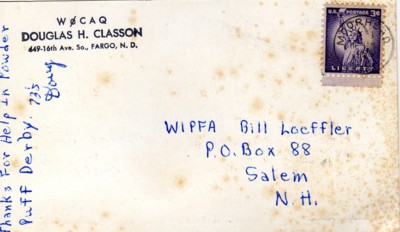 WØCAQ
DOUGLAS H. CLASSON
449-16th Ave. So., FARGO, N. D.
U.S. POSTAGE 3¢
LIBERTY
MOORHEAD
W1PFA Bill Loeffler
P.O. Box 88
Salem
N.H.
Thanks For Help In Powder
Puff Derby. 73's
Doug